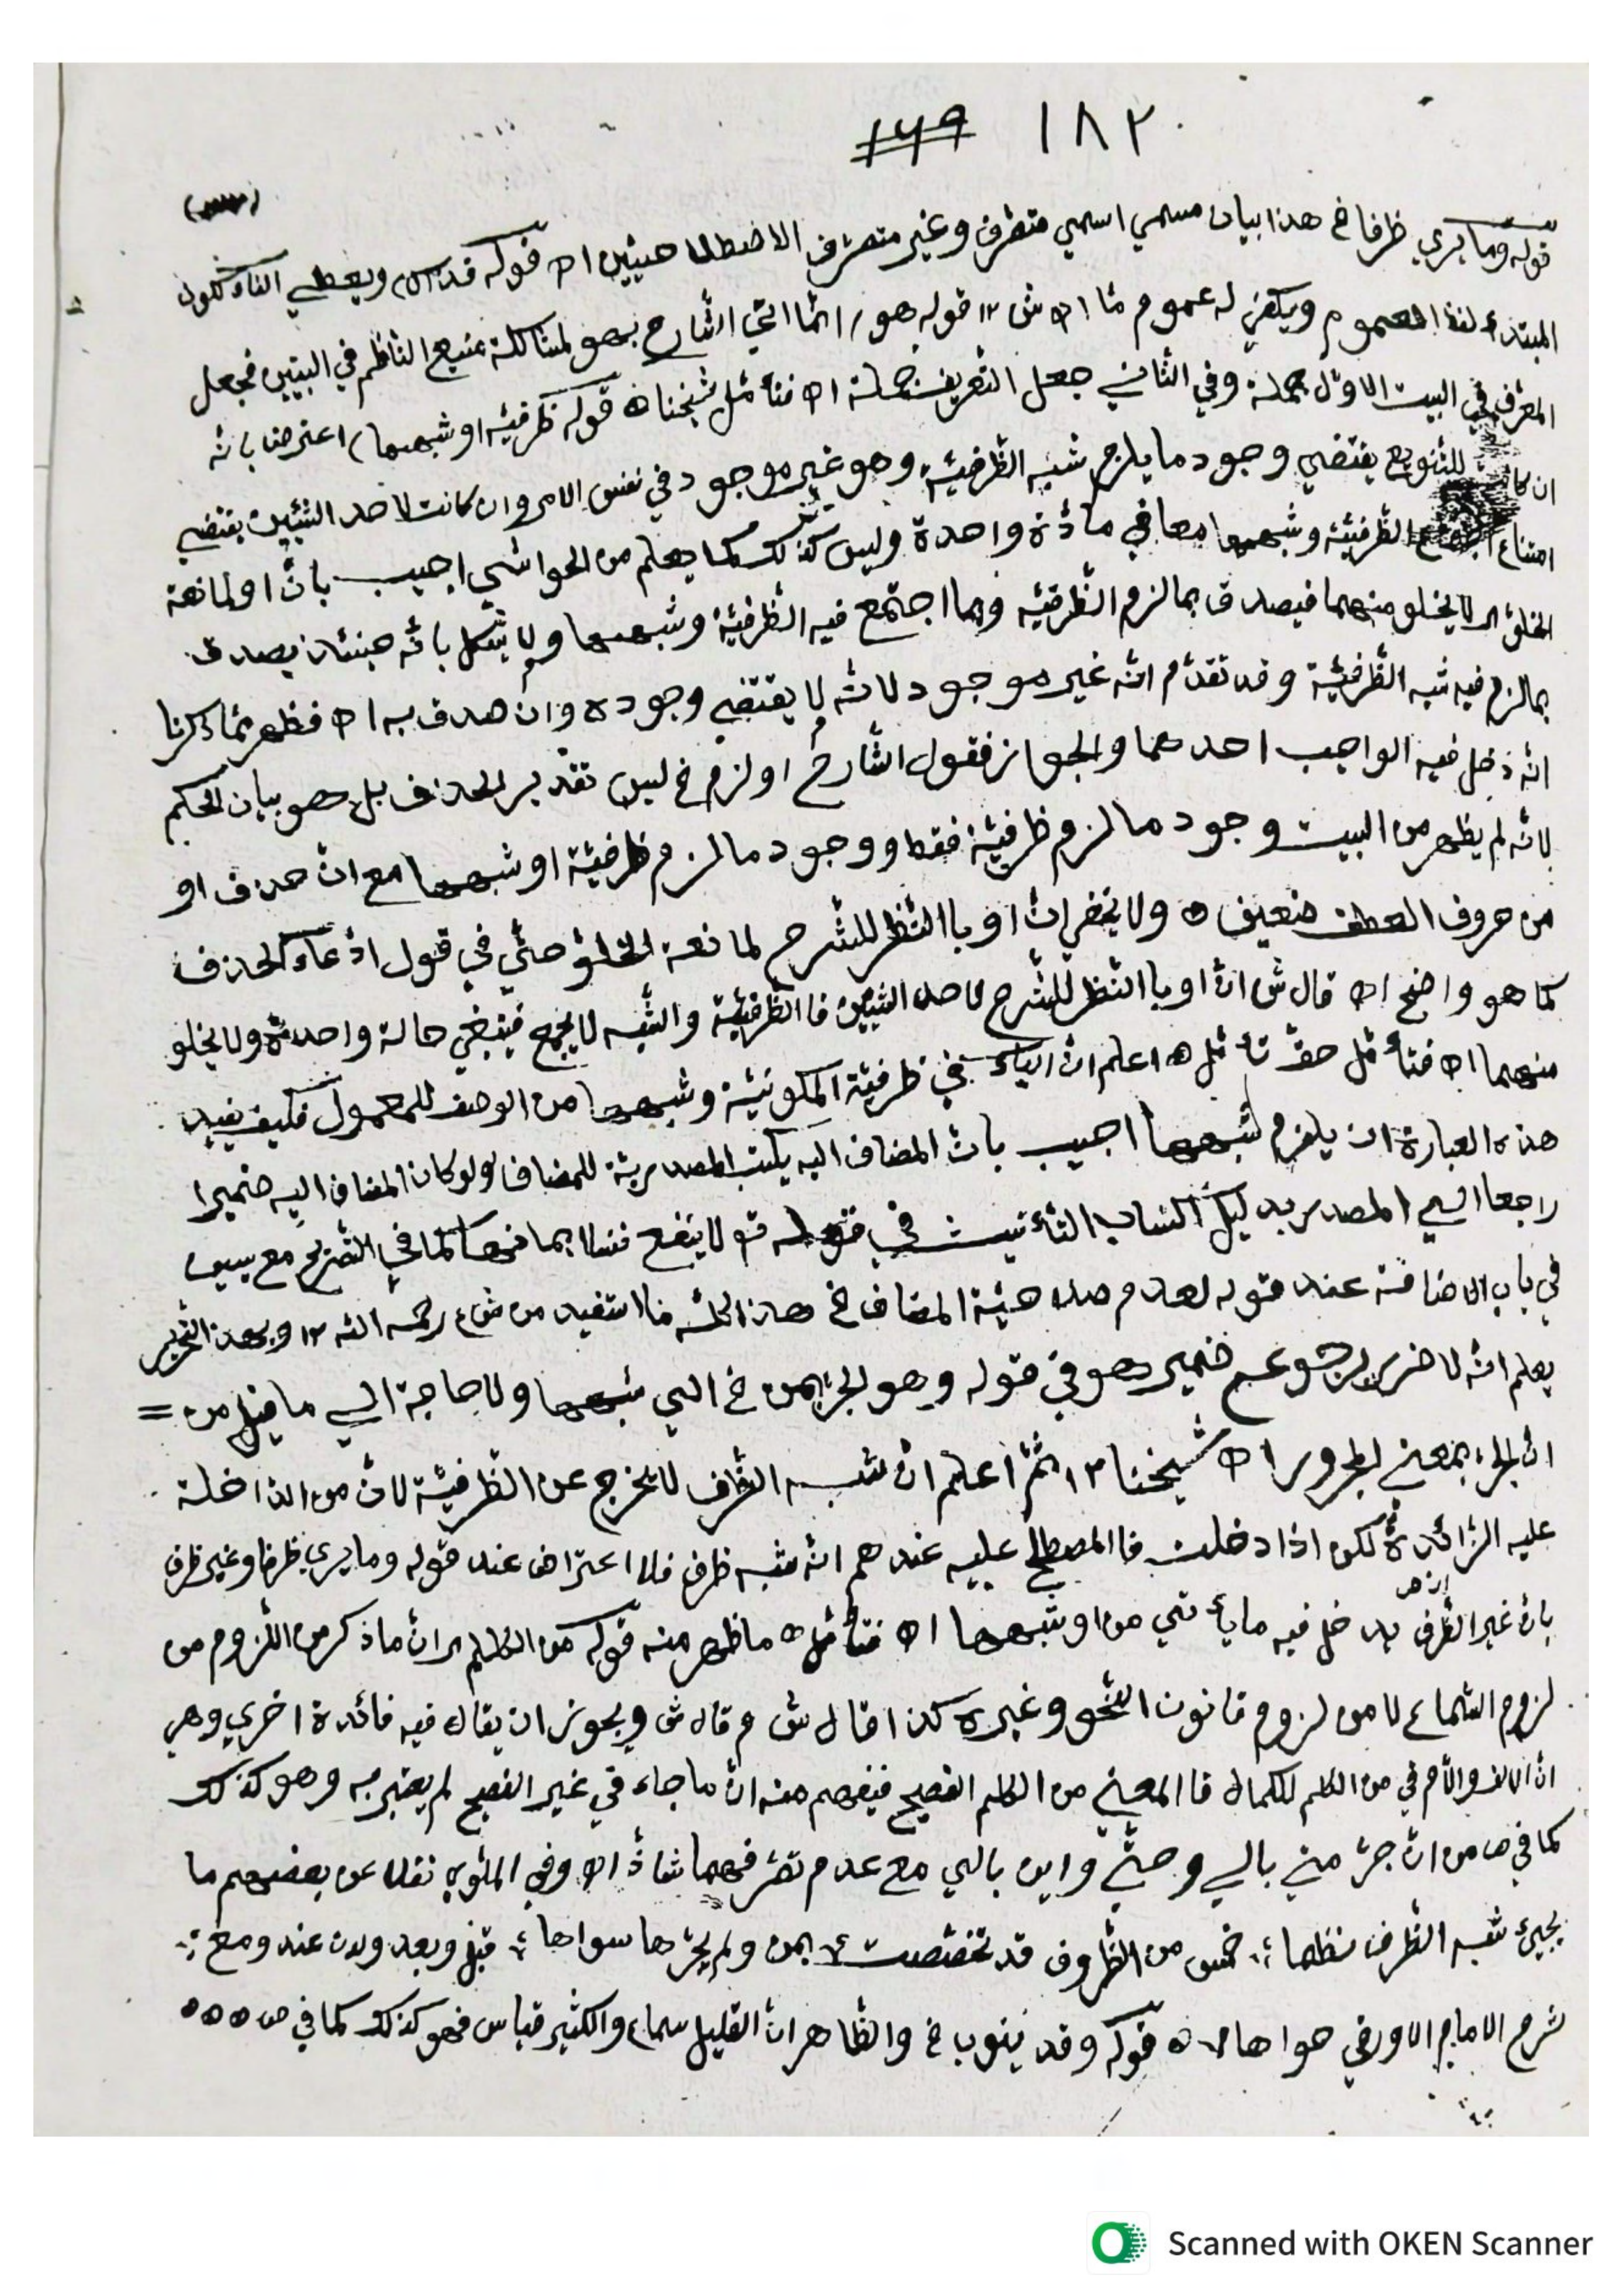 ١٨٢ ١٧٩
قوله وما يري ظرفا خ هذا بيان مسمي اسمي متصرف وغير متصرف الاصطلاحيين اه قوله قد ويعطي الفاء لكون
المبتدء لفظ العموم ويكفي له عموم ما اه ش ١٢ قوله هو / انما اتي الشارح بهو لمشاكلة صنيع الناظم في البيتين فجعل
المعرف في البيت الاول جملة وفي الثاني جعل التعريف جملة اه فتأمل شيخنا ه قوله ظرفيّة او شبهها) اعترضنا بانّه
ان كان للتنويع يقتضي وجود ما يلزم شبه الظّرفيّة وهو غير موجود في نفس الامر وان كانت لاحد الشّيئين يقتضي
امتناع اجتماع الظّرفيّة وشبهها معا في مادّة واحدة وليس كذلك كما يعلم من الحواشي اجيب بانّ او لمانعة
الخلوّ لا يخلو منهما فيصدق بما لزم الظّرفيّة وبما اجتمع فيه الظّرفيّة وشبهها ولا يشكل بانّه حينئذ يصدق
بما لزم فيه شبه الظّرفيّة وقد تقدّم انّه غير موجود لانّه لا يقتضي وجوده وان صدق به اه فظهر ممّا ذكرنا
انّه دخل فيه الواجب احدهما والجواز فقول الشّارح او لزم خ ليس تقدير الحذف بل هو بيان الحكم
لانّه لم يظهر من البيت وجود ما لزم ظرفيّة فقط ووجود ما لزم ظرفيّة او شبهها مع انّ حذف او
من حروف العطف ضعيف ه ولا يخفى انّ او باالنّظر للشّرح لمانعة الخلوّ حتّي في قول ادّعاء الحذف
كما هو واضح اه قال ش انّ او باالنّظر للشّرح لاحد الشّيئين فاالظّرفيّة والشّبه لا يجمع في حالة واحدة ولا يخلو
منهما اه فتأمّل حقّ تأمّل ه اعلم انّ الياء في ظرفيّة المكونيّة وشبهها من الوصف للمعمول فكيف يفيد
هذه العبارة ان يلزم لشبهها اجيب بانّ المضاف اليه يكتب المصدريّة للمضاف ولو كان المضاف اليه ضميرا
راجعا الي المصدر بدليل اكتساب التّأنيث في قوله تو لا ينفع نفسا ايمانها كما في التّصريح مع يس
في باب الاضافة عند قوله لعدم صلاحيّة المضاف خ هذا كلّه ما استفيد من ش رحمه الله ١٢ وبهذا التّحرير
يعلم انّه لا ضرر لرجوع ضمير هو في قوله وهو الجرّ بمن خ الي شبهها ولا حاجة الي ما قيل من =
انّ الجرّ بمعني المجرور اه شيخنا ١٢ ثمّ اعلم انّ شبه الظّرف لا يخرج عن الظّرفيّة لانّ من الدّاخلة
عليه الزّائدة لكن اذا دخلت فاالمصطلح عليه عندهم انّه شبه ظرف فلا اعتراض عند قوله وما يري ظرفا وغير ظرف
بانّ غير الظّرف يدخل فيه ما يأتي من او شبهها اه فتأمّل ه ما ظهر منه قوله من الكلم) انّ ما ذكر من اللّزوم من
لزوم السّماع لا من لزوم قانون النّحو وغيره كذا قال ش م قال ش ويجوز ان يقال فيه فائدة اخري وهي
انّ الالف واللّام في من الكلم للكمال فاالمعني من الكلم الفصيح فيفهم منه انّ ما جاء في غير الفصيح لم يعتبر به وهو كذلك
كما في ص من انّ جرّ متي بالي وحتّي واين بالي مع عدم تصرّفهما شاذّ اه وفي الملّوي نقلا عن بعضهم ما
يجيئ شبه الظّرف نظما ؛ خمس من الظّروف قد تخصّصت ؛ بمن ولم يجرّها سواها ؛ قبل وبعد ولدن عند ومع ؛
شرح الامام حواها ١٢ ه قوله وقد ينوب خ والظّاهر انّ القليل سماع والكثير قياس فهو كذلك كما في ص ٥٥٥
Scanned with OKEN Scanner